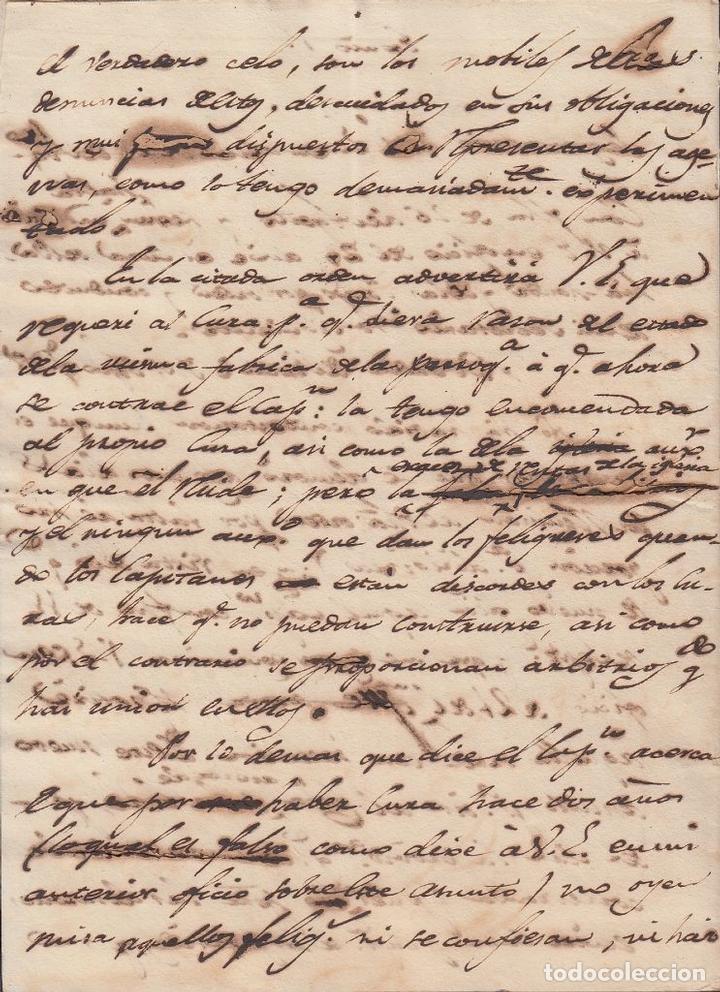 el verdadero celo, son los mobiles de las
denuncias de estos, descuidados en sus obligaciones
y mui dispuestos a representar las age-
nas, como lo tengo demasiadamte. experimen
tado.
En la citada orden advertirá V.E. que
requeri al Cura pa. qe. diera razon del estado
de la misma fabrica de la parroqa. á qe. ahora
se contrae el Capn: la tengo encomendada
al propio Cura, asi como la de la auxr.
en que él reside; pero la escases de rentas de la Iglesia
y el ningun auxo. que dan los feligreses quan-
do los Capitanes estan discordes con los Cu-
ras, hace qe. no puedan construirse, asi como
por el contrario se proporcionan arbitrios qdo
hai union en ellos.
Por lo demas que dice el Capn. acerca
que por haber Cura hace dos años
(lo qual es falso como dixe á V.E. en mi
anterior oficio sobre este asunto) no oyen
misa aquellos feligs. ni se confiesan, ni hai
todocoleccion.net